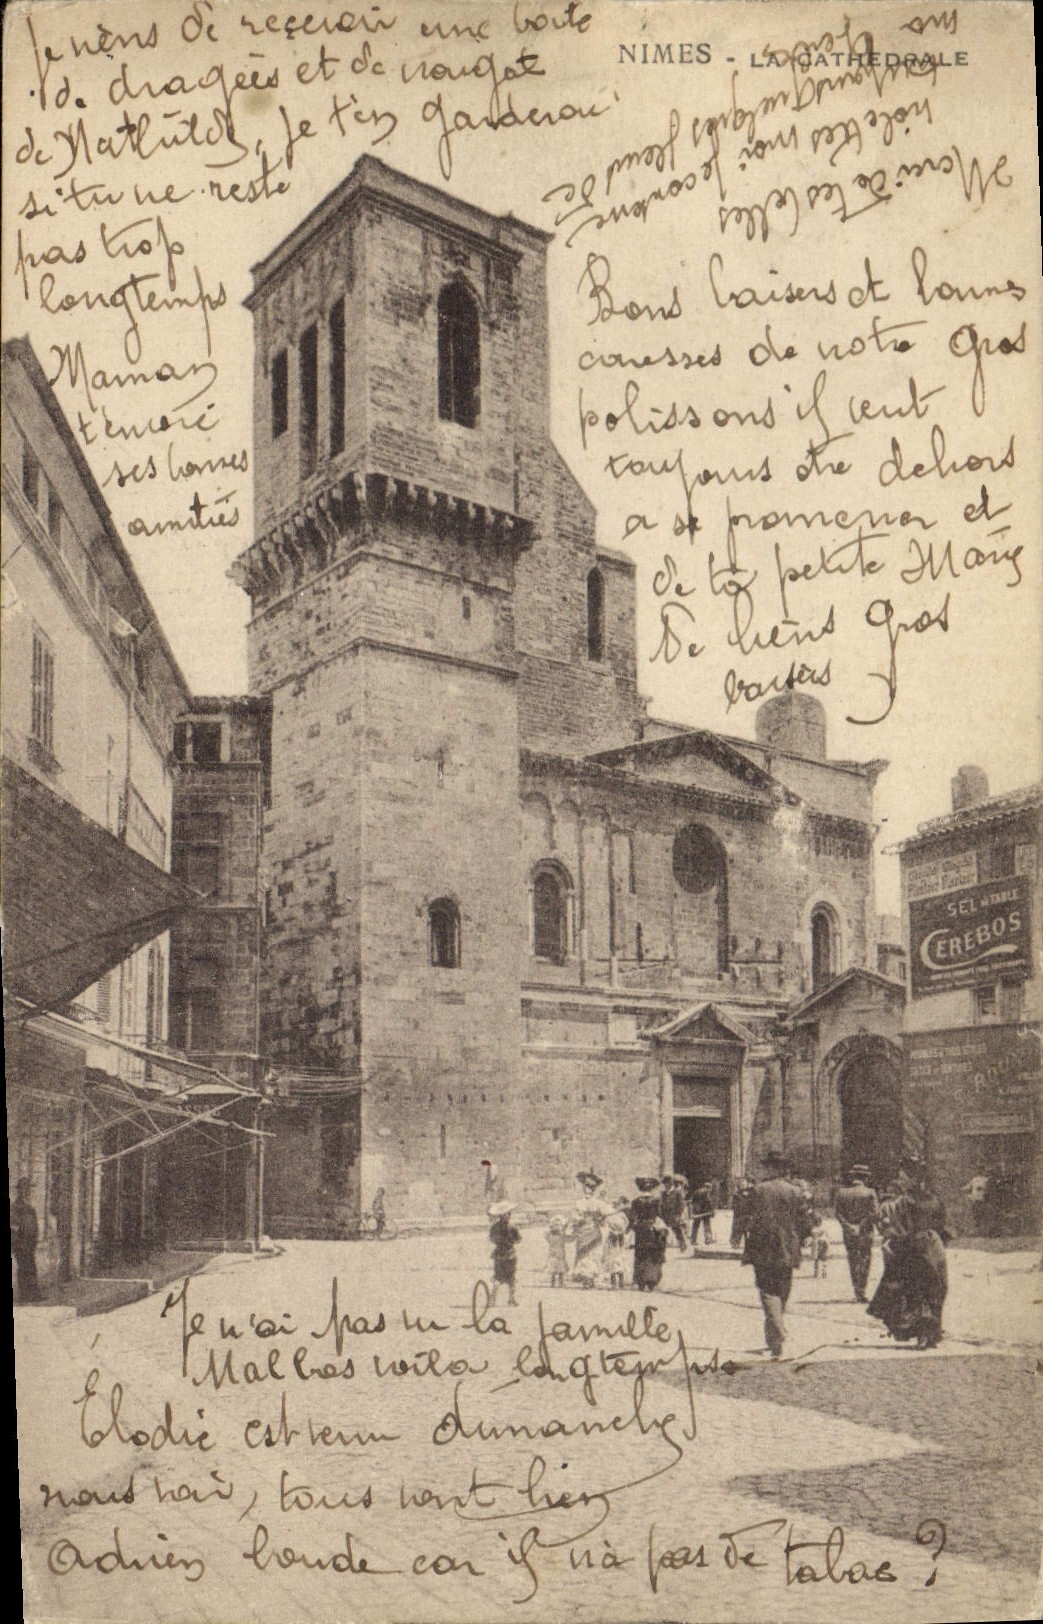 NIMES - LA CATHEDRALE
Je viens de reçevoir une boite
de dragées et de nougat
de Mathilde, je t'en garderai
si tu ne reste
pas trop
longtemps
Maman
t'envoie
ses bonnes
amitiés
Merci de tes belles
violettes moi je
quelques fleurs de
Bons baisers et bonnes
caresses de notre Gros
polissons il veut
toujours être dehors
a se promener et
de ta petite Marie
De biens Gros
baisers
SEL DE TABLE
CEREBOS
Je n'ai pas vu la famille
Malbos voila longtemps
Élodie est venu dimanche
nous voir, tous vont bien
Adrien boude car il n'a pas de tabac ?